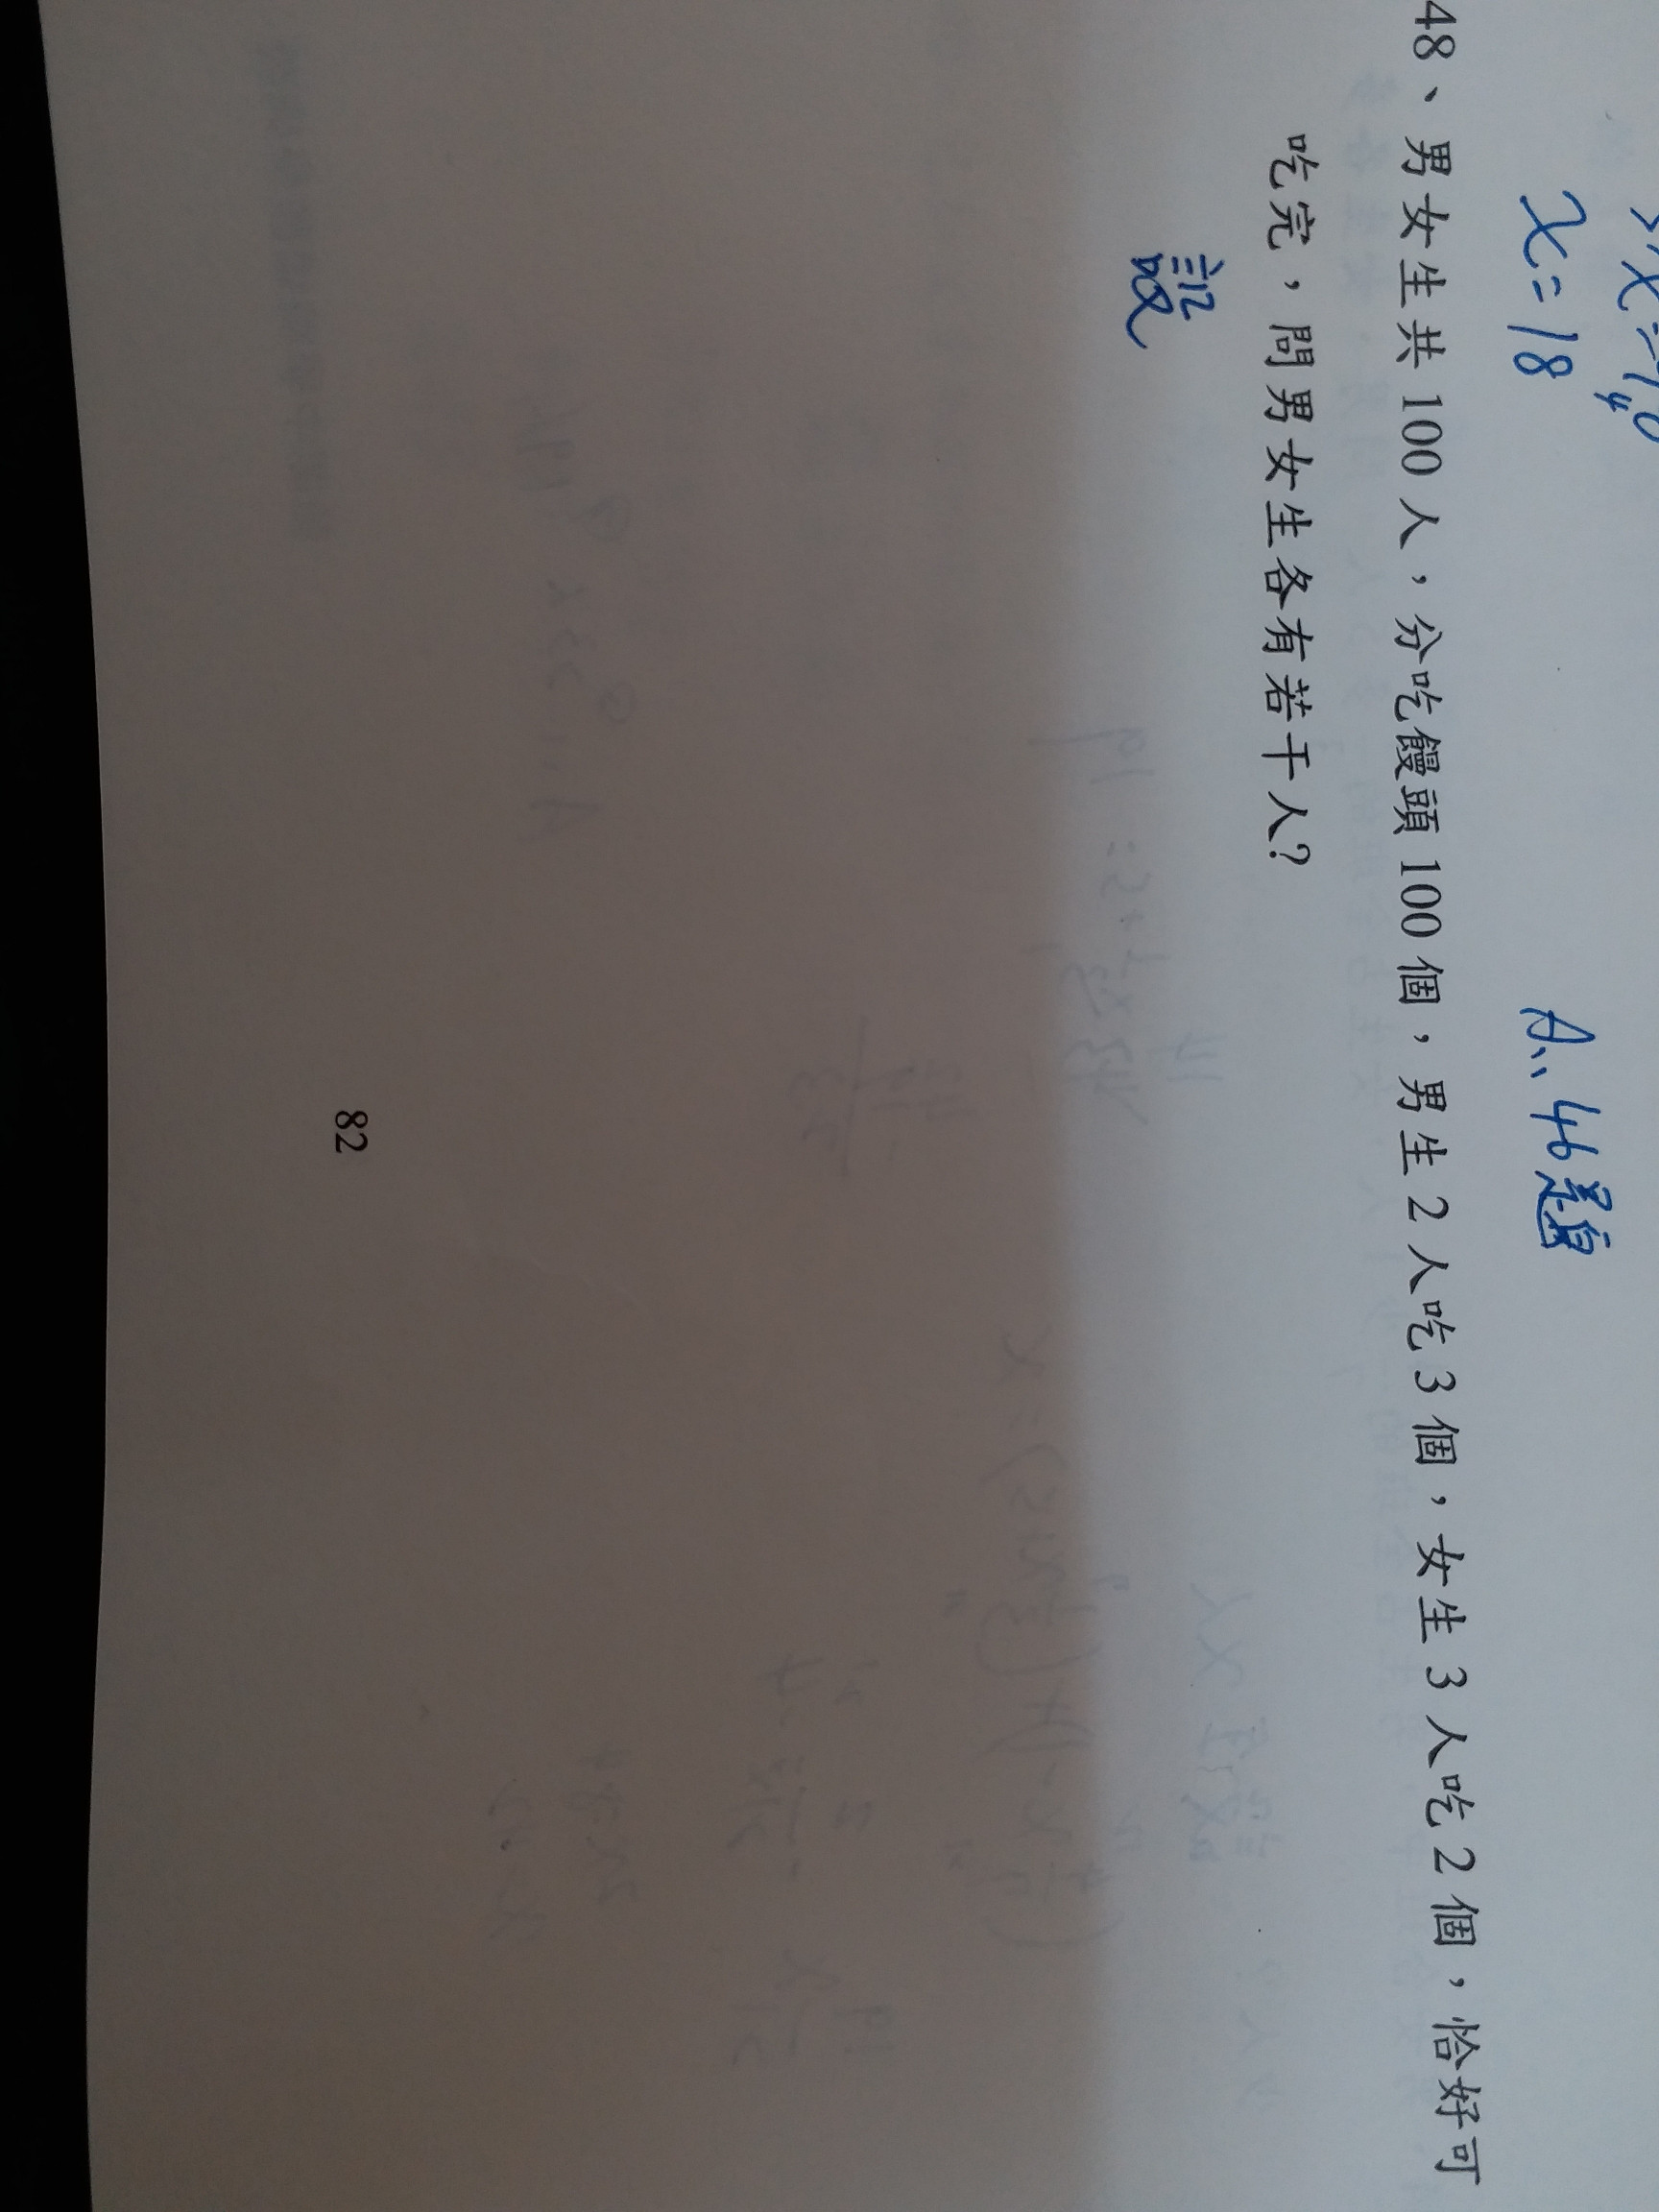 x=18
A、46題
48、男女生共100人，分吃饅頭100個，男生2人吃3個，女生3人吃2個，恰好可
吃完，問男女生各有若干人?
設
82